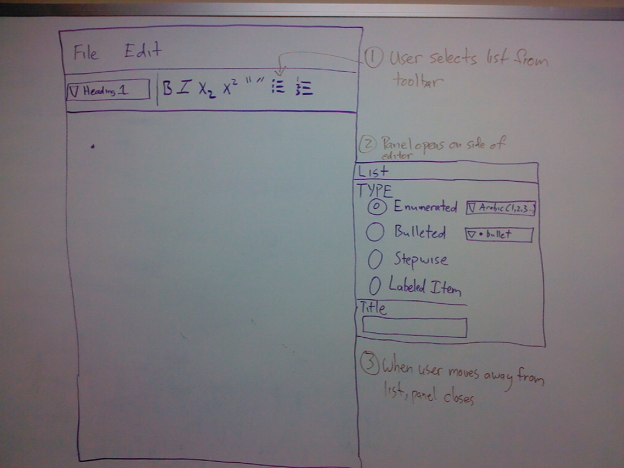 File Edit
▽ Heading 1 B I X₂ X² " "
① User selects list from
toolbar
② Panel opens on side of
editor
List
TYPE
Enumerated ▽ Arabic (1,2,3..)
Bulleted ▽ • bullet
Stepwise
Labeled Item
Title
③ When user moves away from
list, panel closes